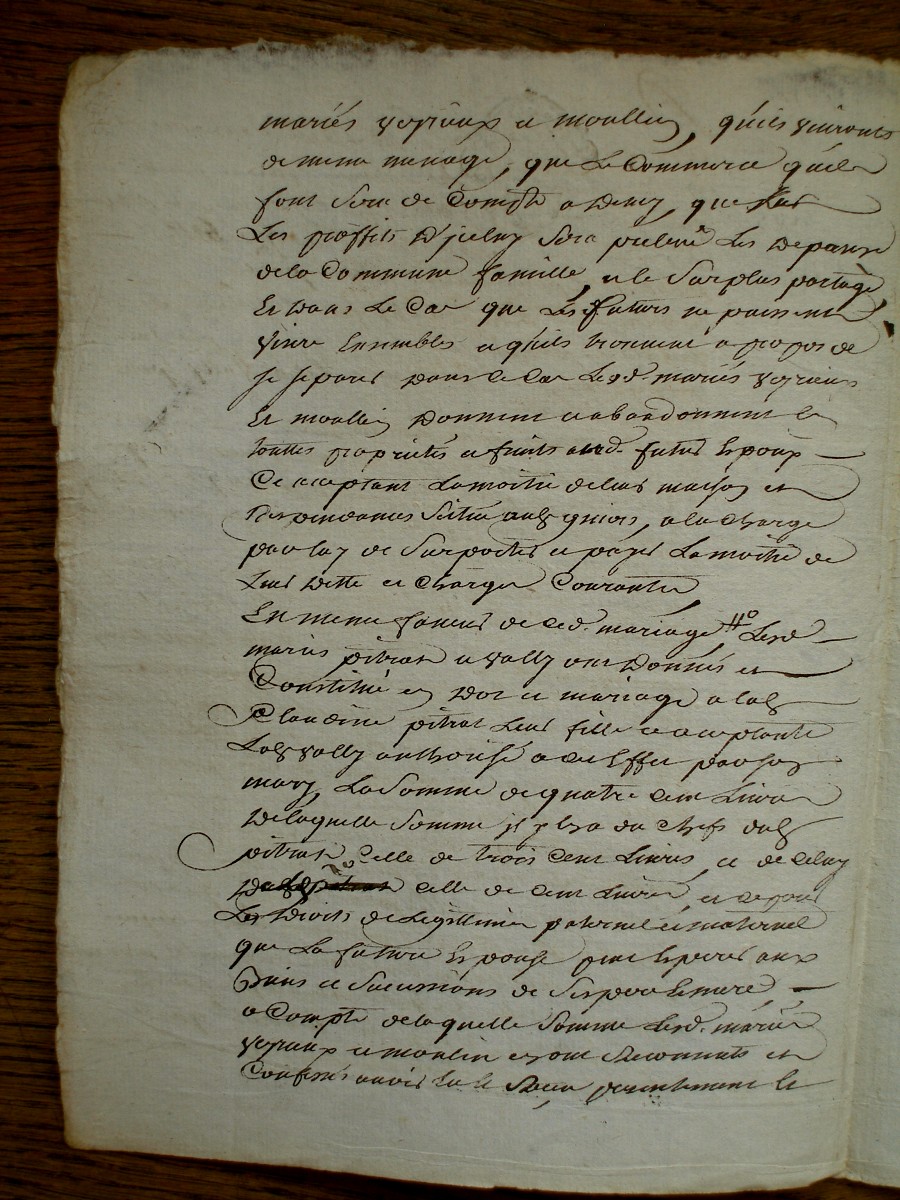 mariés veyrieux et moullin, quils vivronts
de meme menage, que le Commerce quils
font sera de Compte a demy, que sur
Les proffits d'jceluy sera prelevé Les depanse
de la Commune famille, et le surplus partagé,
Et dans Le Cas que Les futurs ne puissent
vivre Ensembles et quils trouvent a propos de
se separer dans ce Cas Lesd. mariés veyrieux
Et moullin donnent et abandonnent en
touttes proprietés et fruits aud. futur Epoux
Ce acceptant La moitié de leur maison et
Dependances, a la Charge
par luy de supporter et payer La moitié de
Leur dette et Charges Courantes
En meme faveur de ced. mariage Lesd
mariés pitrat et vally ont donnés et
Constitué en dot et mariage a lad
Claudine pitrat Leur fille ce acceptante
Lad vally authorisé a cet Effet par son
mary, La somme de quatre Cent Livres
De laquelle somme jl y en a du Chefs dud
pitrat Celle de trois Cent Livres, et de Celuy
celle de Cent Livres, et ce pour
Les Droits de Legittime paternel et maternel
que La future Epouse peut Esperer aux
Biens et successions de ses pere Et mere
a Compte de laquelle somme Lesd. mariés
veyrieux et moulin et
Confessés avoir Eu et Receu presentement et